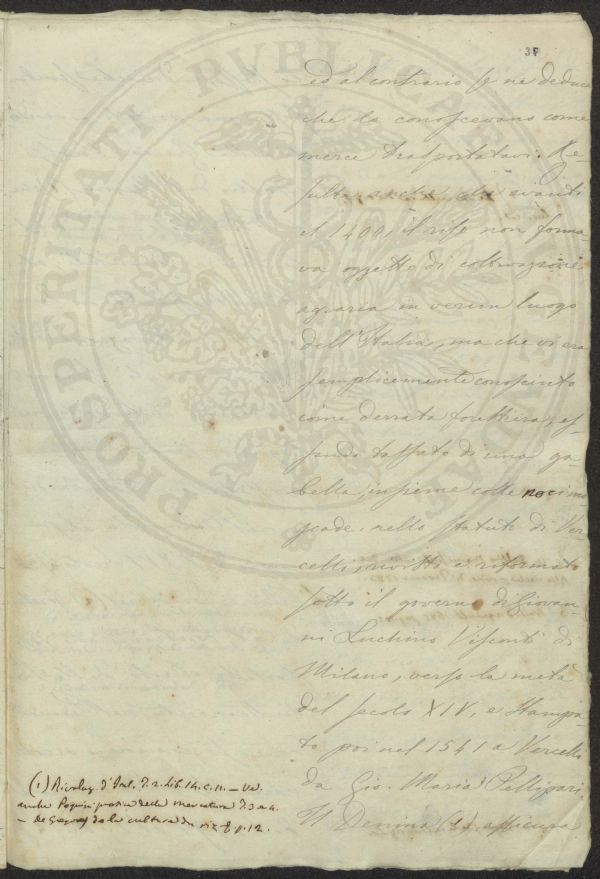 37
ed al contrario se ne deduce
che la conoscevano come
merce trasportatavi. Re-
sulta anche che avanti
il 1400, il riso non forma-
va oggetto di coltivazione
agraria in verun luogo
dell'Italia, ma che vi era
semplicemente conosciuto
come derrata forestiera, es-
sendo tassato di una ga-
bella, insieme colle noci mo-
scade, nello statuto di Ver-
celli, scritto e riformato
sotto il governo di Giovan-
ni Luchino Visconti di
Milano, verso la metà
del secolo XIV, e stampa-
to poi nel 1541 a Vercelli
da Gio. Maria Pellipari.
Il Denina (1) assicura
(1) Rivoluz. d'Ital. T. 2. Lib. 14. c. 11. — Ved.
anche Pagnini pratica della mercatura T. 3 e 4.
— De Gregory de la culture du riz p. 12.
PROSPERITATI PVBLICAE AVGENDAE